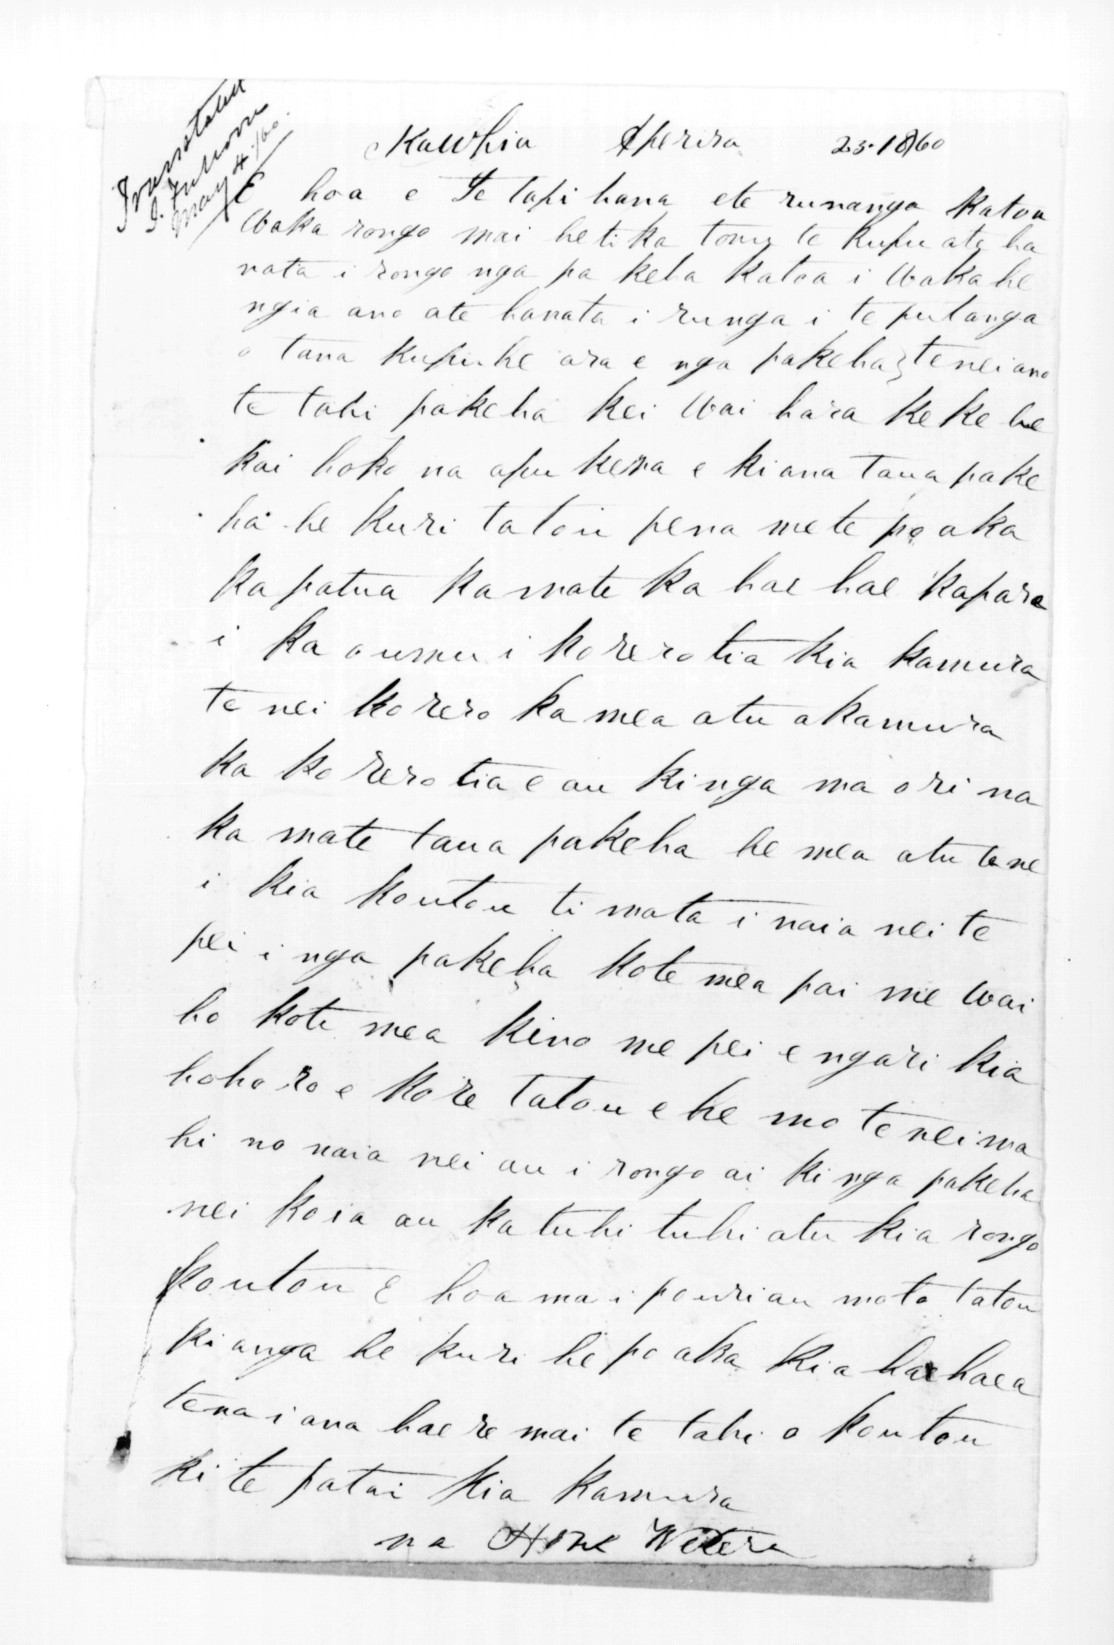 Translated
May 4./60.
Kawhia Aperira 23. 1860
E hoa e Te tapihana ete runanga katoa
Waka rongo mai he tika tonu te kupu ate ha
nata i rongo nga pa keha katoa i Waka he
ngia ano ate hanata i runga i te putanga
o tana kupu he ara e nga pakeha, tenei ano
te tahi pakeha kei Wai hara ke ke he
kai hoko na apu kena e ki ana taua pake
ha he kuri tatou pena me te po aka
ka patua ka mate ka hae hae kapara
i ka oumu i ko rero tia kia kamura
te nei ko rero ka mea atu a kamura
ka ko rero tia e au ki nga ma ori na
ka mate taua pakeha he mea atu te ne
i kia koutou ti mata i naia nei te
pei i nga pakeha kote mea pai me Wai
ho kote mea kino me pei e ngari kia
hoho ro e ko re tatou e he mo te nei ma
hi no naia nei au i rongo ai ki nga pakeha
nei ko ia au ka tuhi tuhi atu kia rongo
koutou E hoa ma i pouri au mo to tatou
ki anga he kuri he po aka kia hae haea
tena i ana hae re mai te tahi o koutou
ki te patai kia kamura
na Hone Wetere